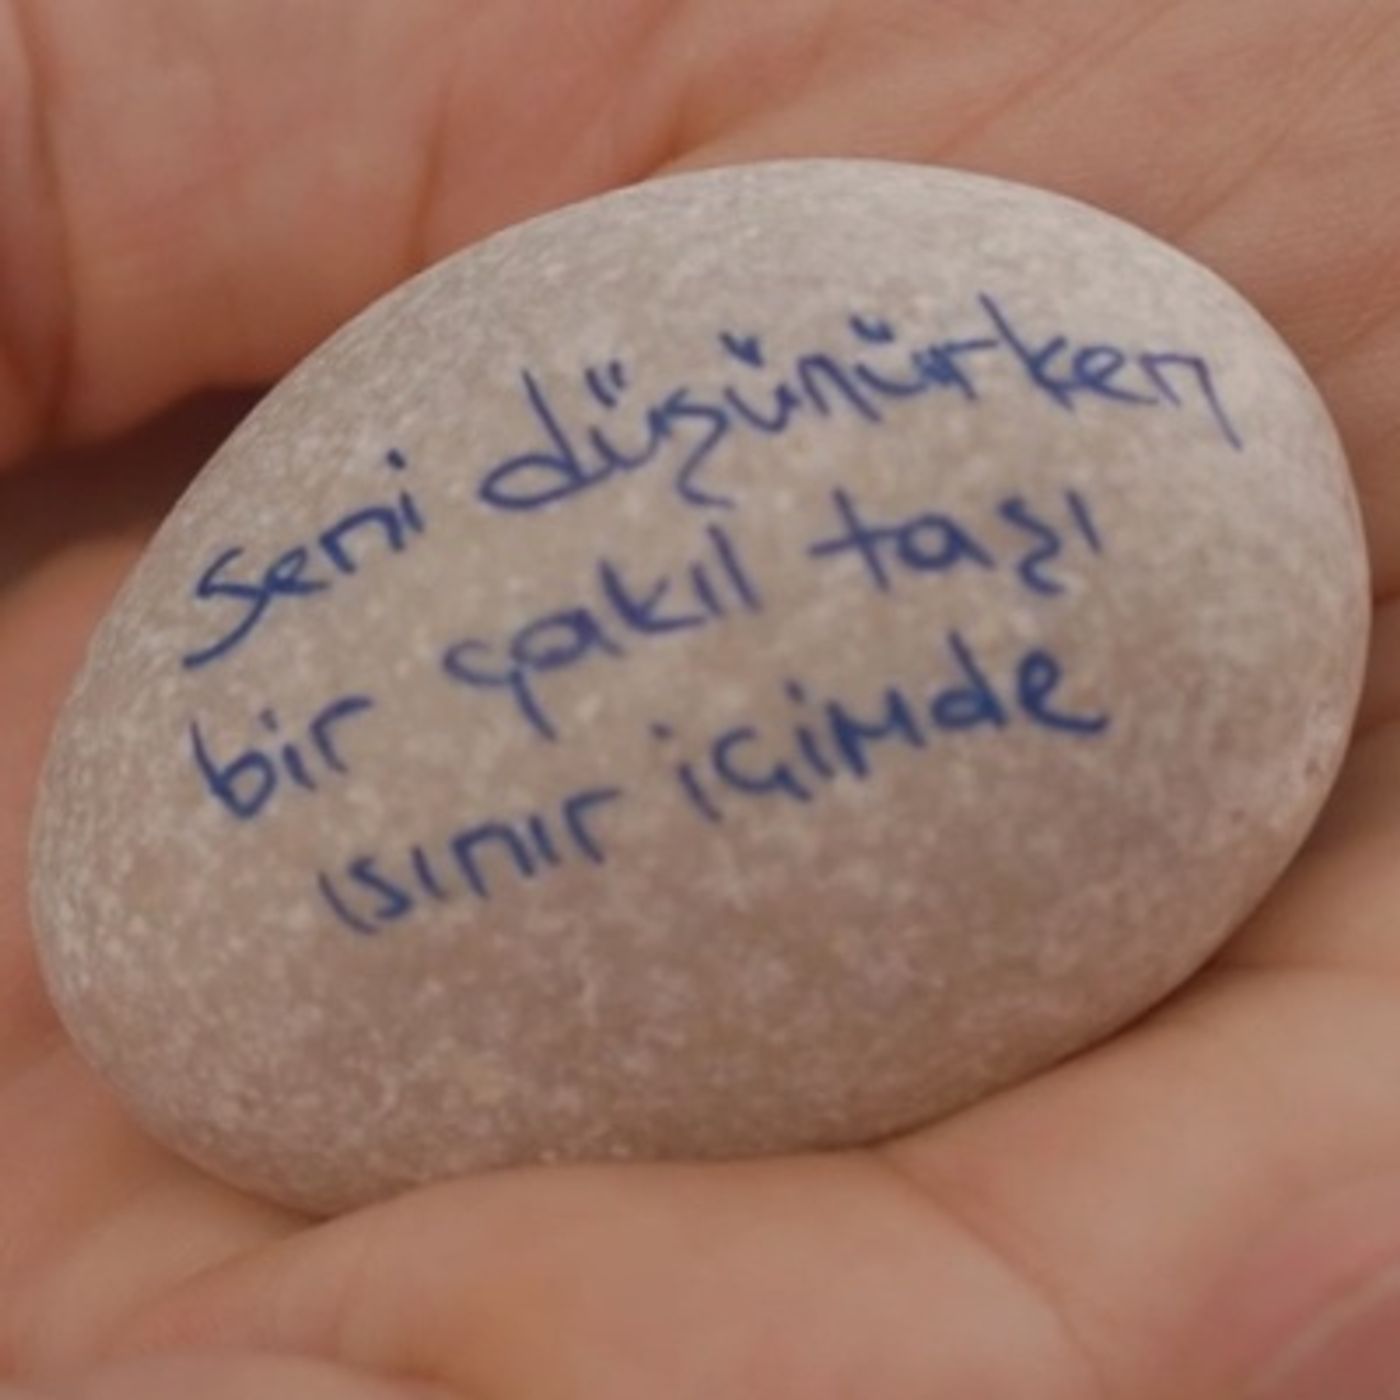 Seni düşünürken
bir çakıl taşı
ısınır içimde